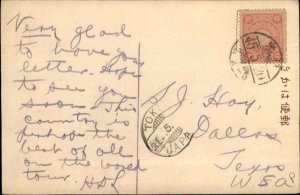 Very glad
to have your
letter. Hope
to see you
soon. This
country is
perhaps the
best of all
on the
H
S. J. Hay,
Dallas
Texas
W. S. A
TOK
5.
きかは便郵